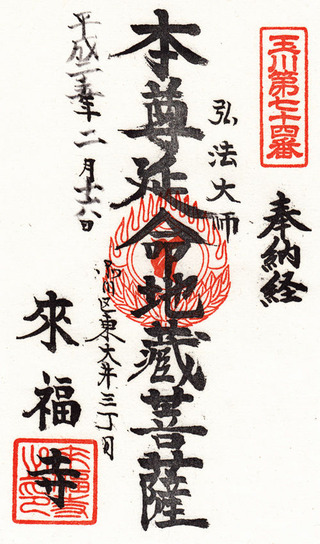 玉川第七十四番
奉納経
弘法大師
本尊延命地蔵菩薩
品川区東大井三丁目
平成二十五年二月十六日
來福寺